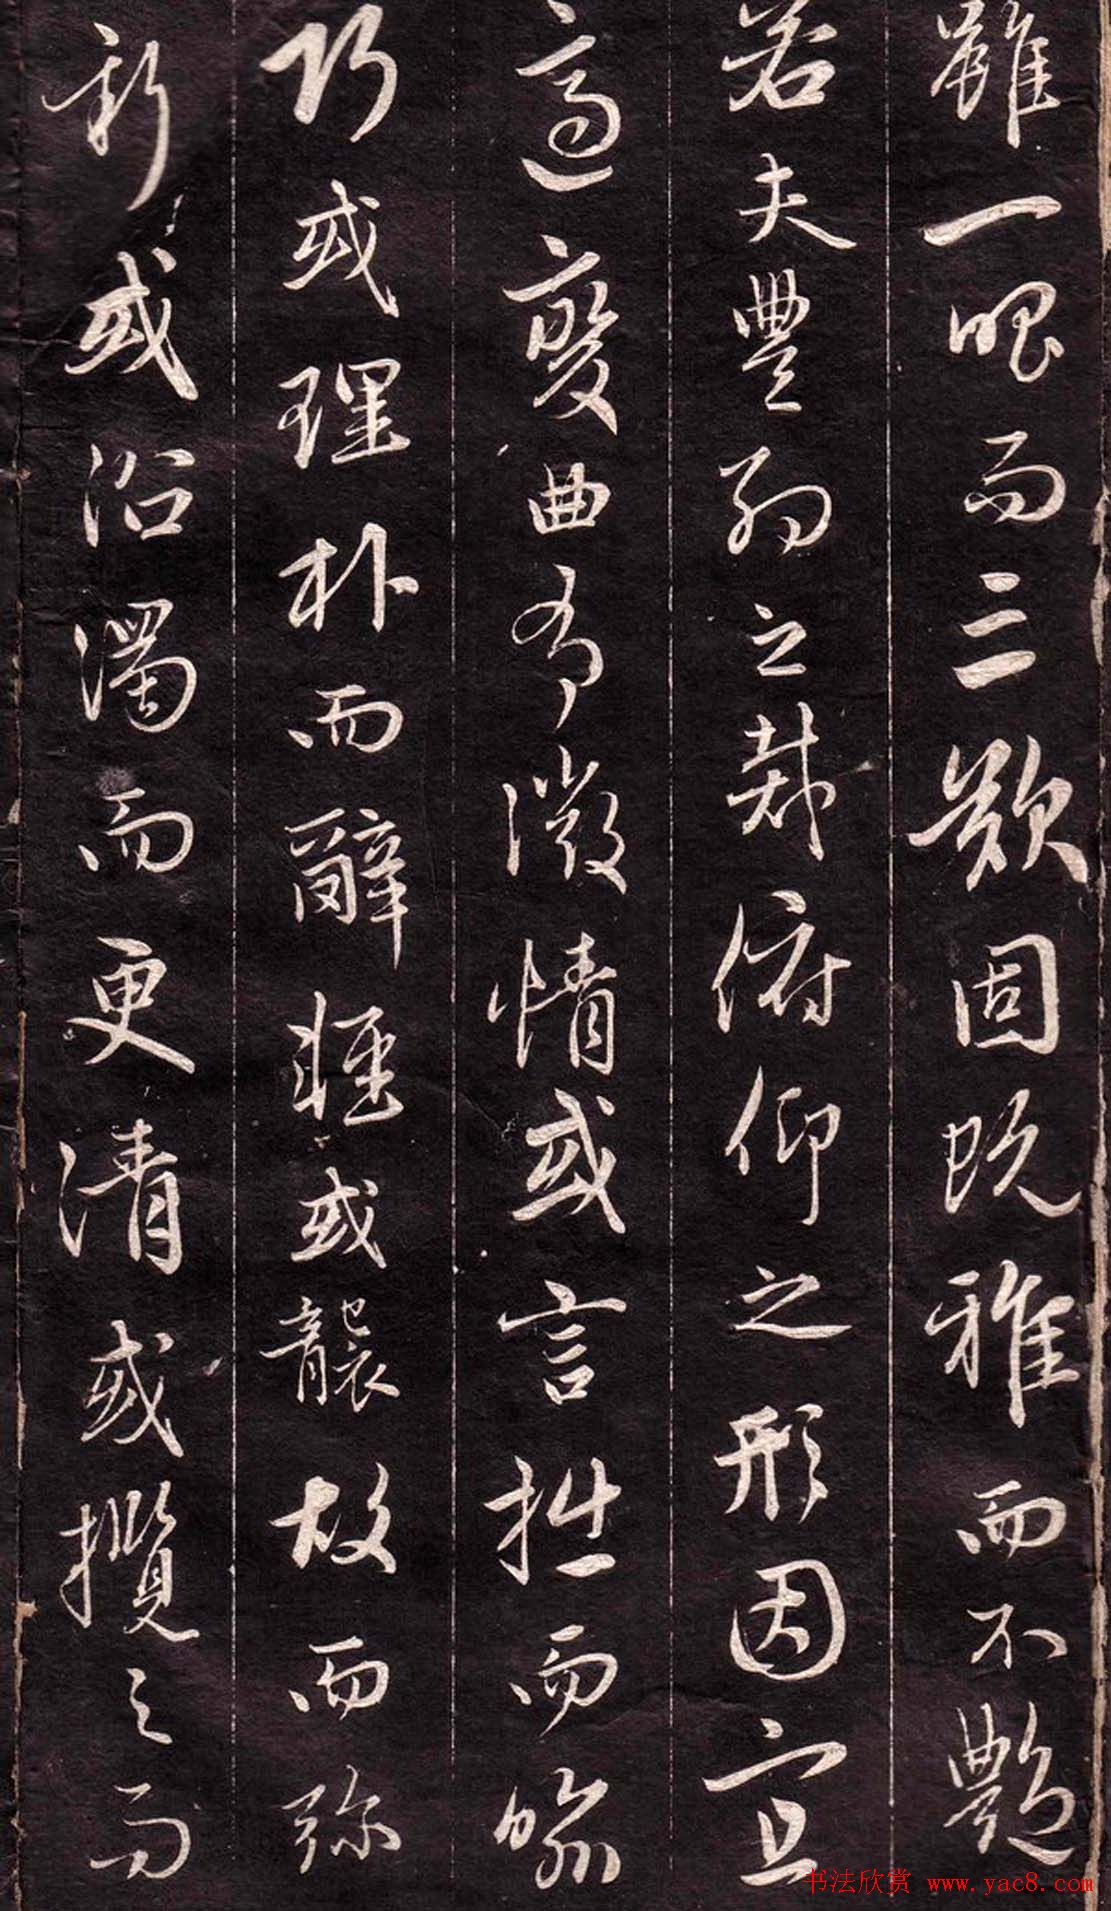 雖一唱而三歎固既雅而不艷
若夫豐約之裁俯仰之形因宜
適變曲有微情或言拙而喻
巧或理朴而辭輕或襲故而彌
新或沿濁而更清或攬之而
书法欣赏 www.yac8.com